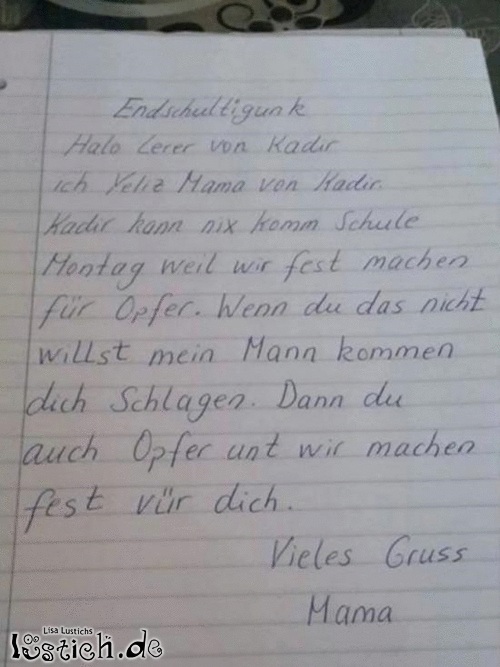 Endschultigunk
Halo Lerer von Kadir
ich Yeliz Mama von Kadir.
Kadir kann nix komm Schule
Montag weil wir fest machen
für Opfer. Wenn du das nicht
willst mein Mann kommen
dich Schlagen. Dann du
auch Opfer unt wir machen
fest vür dich.
Vieles Gruss
Mama
Lisa Lustichs
lustich.de